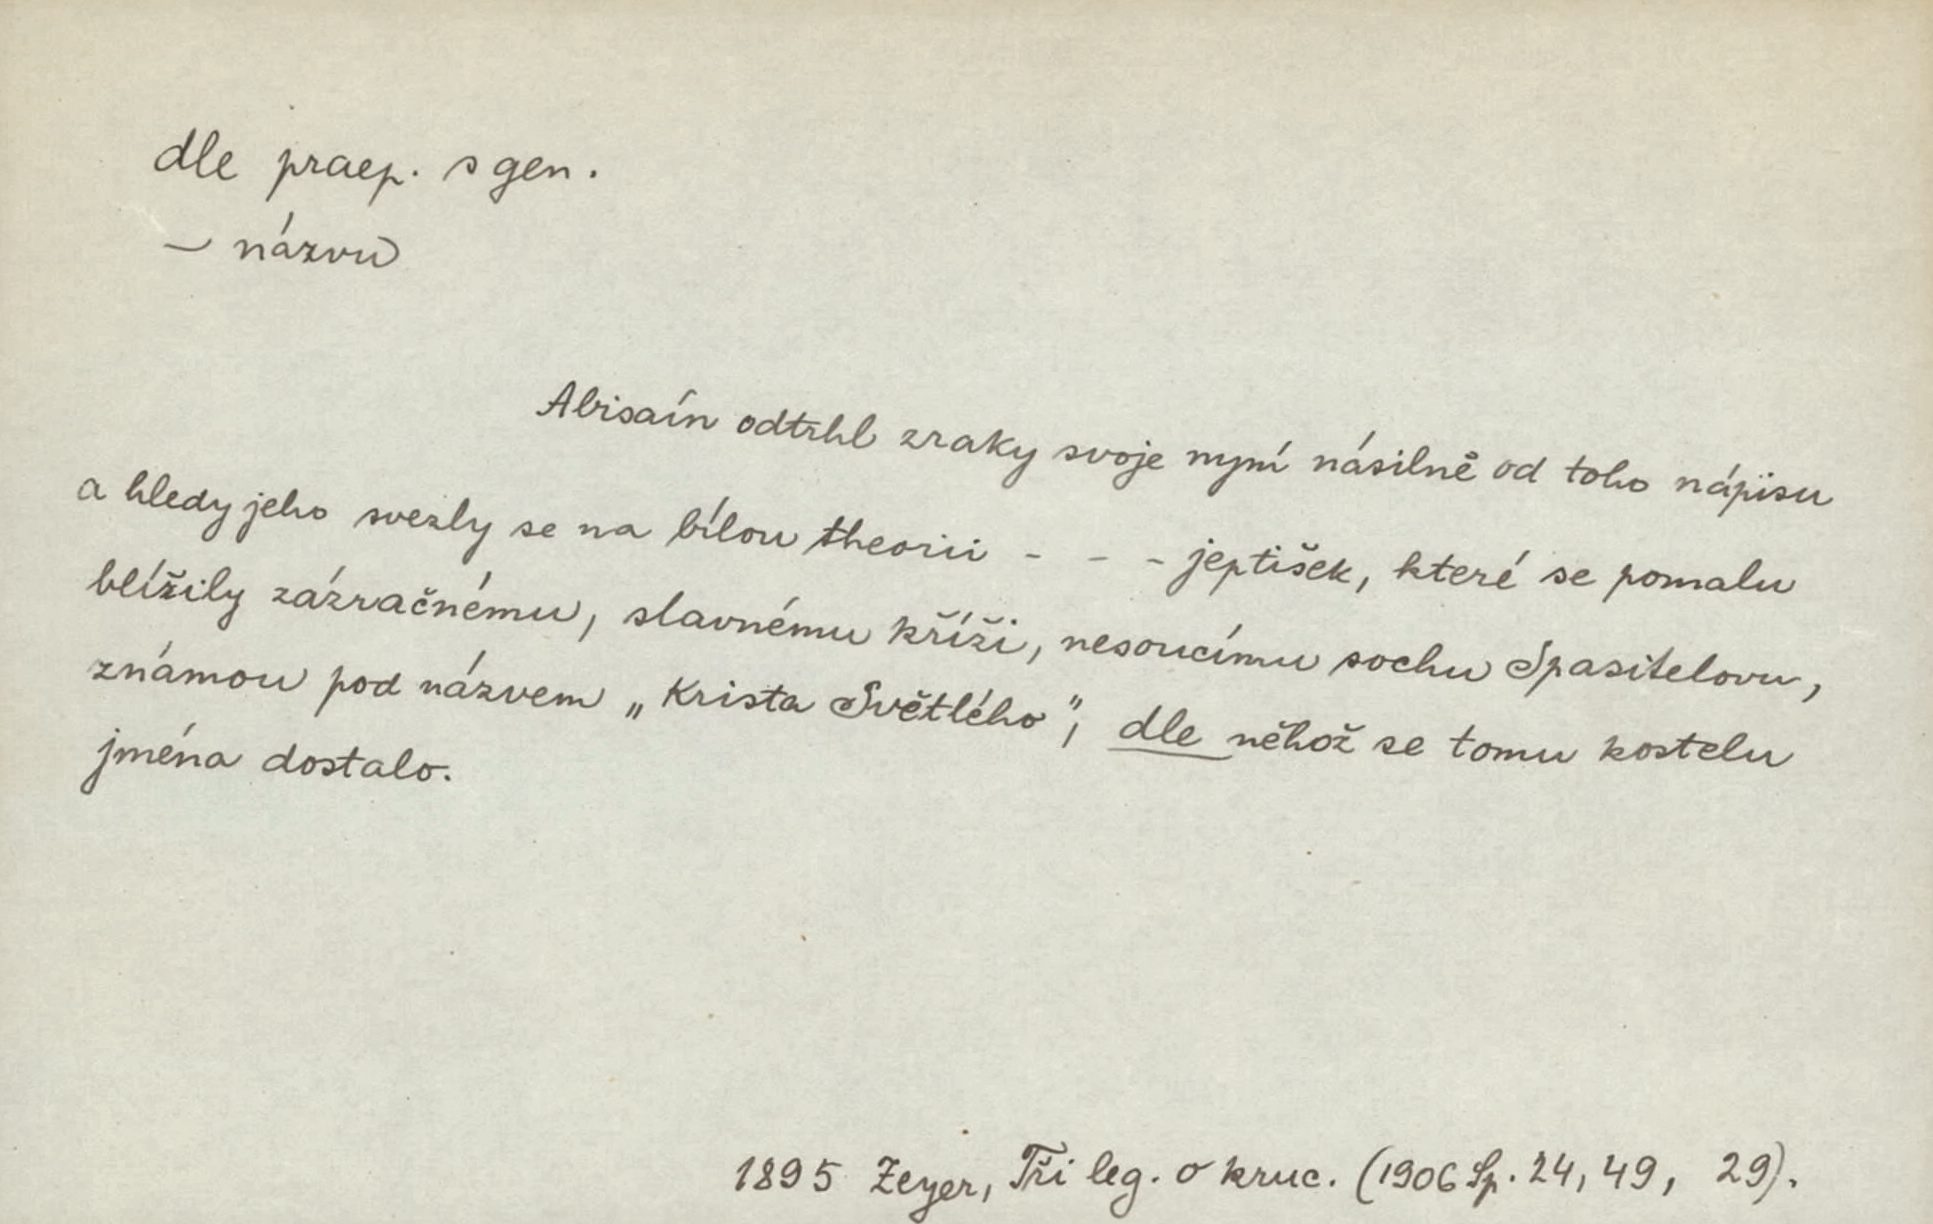 dle praep. s gen.
— názvu
Abisaín odtrhl zraky svoje nyní násilně od toho nápisu
a hledy jeho svezly se na bílou theorii - - - jeptišek, které se pomalu
blížily zázračnému, slavnému kříži, nesoucímu sochu Spasitelovu,
známou pod názvem „Krista Světlého", dle něhož se tomu kostelu
jména dostalo.
1895 Zeyer, Tři leg. o kruc. (1906 Sp. 24, 49, 29).